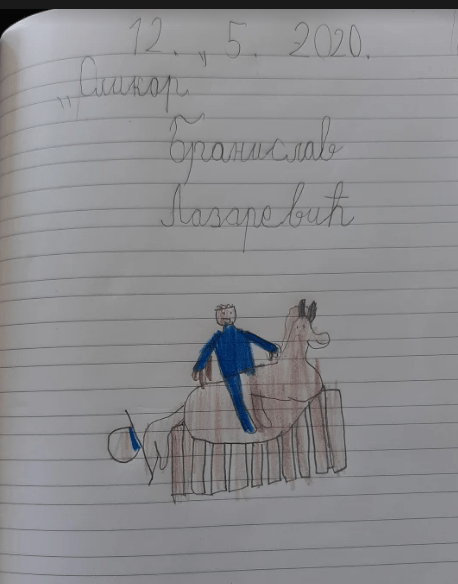 12. 5. 2020.
„Сликар
Бранислав
Лазаревић